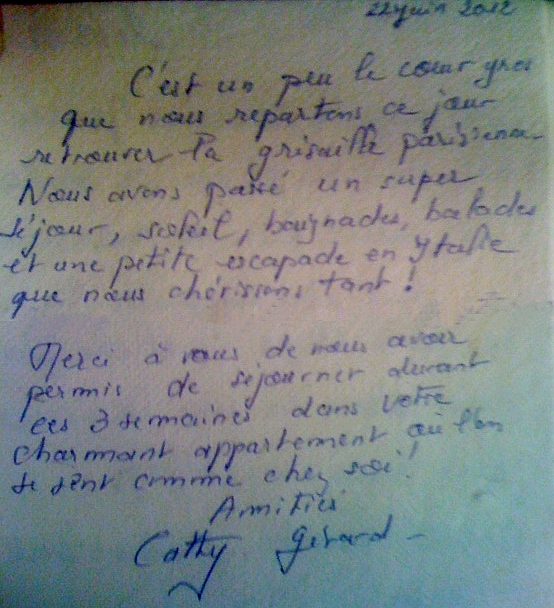 22 juin 2012
C'est un peu le cœur gros
que nous repartons ce jour
retrouver la grisaille parisienne.
Nous avons passé un super
séjour, soleil, baignades, balades
et une petite escapade en Italie
que nous chérissons tant !
Merci à vous de nous avoir
permis de séjourner durant
ces 3 semaines dans votre
charmant appartement où l'on
se sent comme chez soi !
Amitiés
Cathy Gérard